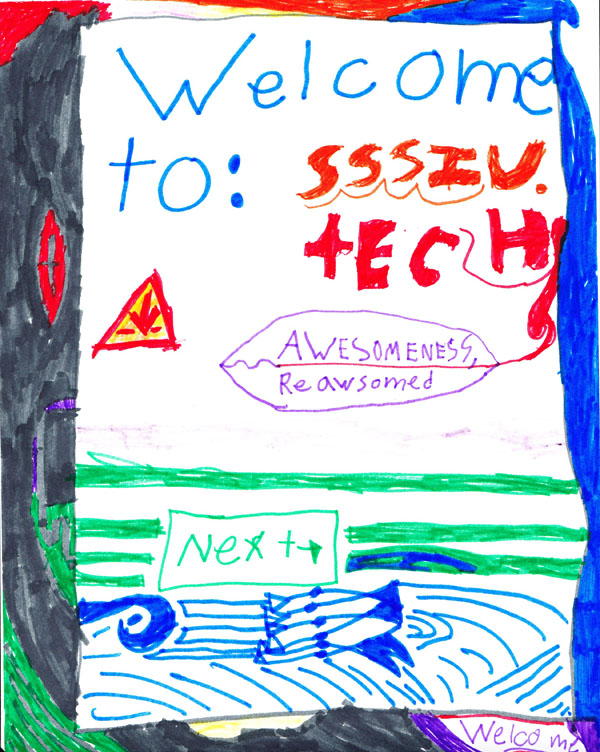 Welcome
to:
SSSIU.
tECH
AWESOMENESS,
Reawsomed
Next→
Welcome